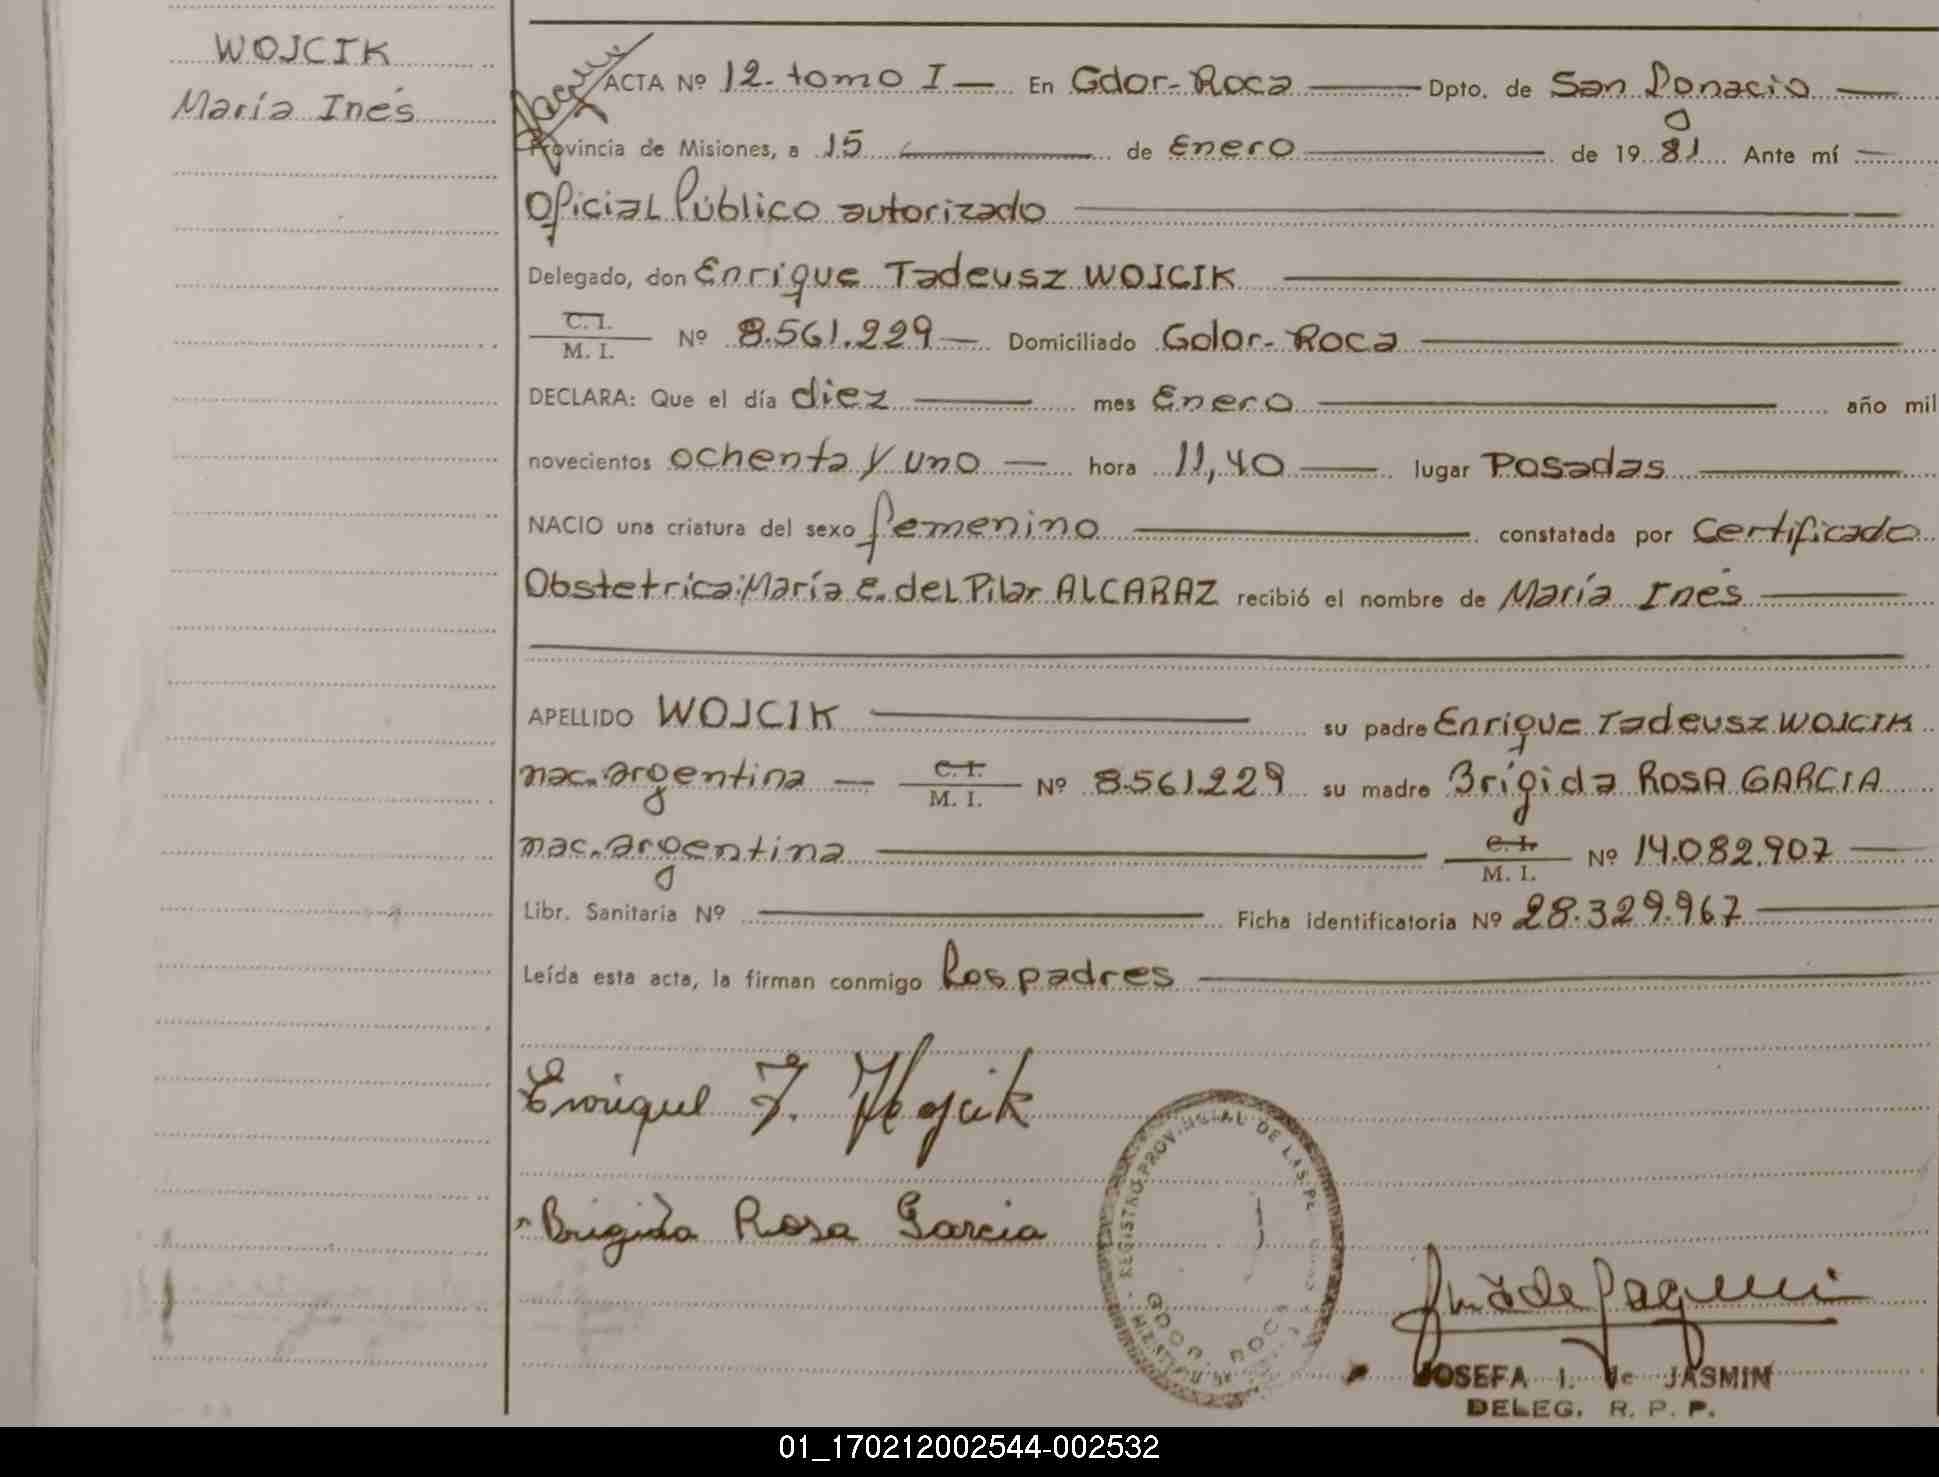 WOJCIK
María Inés
ACTA Nº 12- tomo I — En Gdor- Roca — Dpto. de San Ignacio —
Provincia de Misiones, a 15 — de Enero — de 1981 Ante mí —
Oficial Público autorizado —
Delegado, don Enrique Tadeusz WOJCIK —
C. I.
M. I. Nº 8.561.229 — Domiciliado Gdor- Roca —
DECLARA: Que el día diez — mes Enero — año mil
novecientos ochenta y uno — hora 11,40 — lugar Posadas —
NACIO una criatura del sexo femenino — constatada por Certificado
Obstetrica: María E. del Pilar ALCARAZ recibió el nombre de María Inés —
APELLIDO WOJCIK — su padre Enrique Tadeusz WOJCIK
nac. argentina — C. I. M. I. Nº 8.561.229 su madre Brígida ROSA GARCIA
nac. argentina — C. I. M. I. Nº 14.082.907 —
Libr. Sanitaria Nº — Ficha identificatoria Nº 28.329.967 —
Leída esta acta, la firman conmigo los padres —
Enrique T. Wojcik
Brigida Rosa Garcia
REGISTRO PROVINCIAL DE LAS PE
GDOR. ROCA
JOSEFA I. de JASMIN
DELEG. R. P. P.
01_170212002544-002532